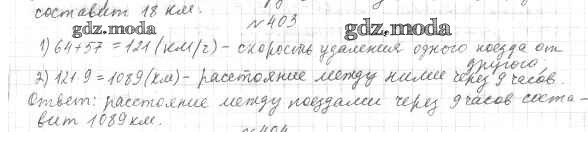 составит 18 км.
№403
gdz.moda gdz.moda
1) 64+57 = 121 (км/г) - скорость удаления одного поезда от
другого,
2) 121 9 = 1089 (км) - расстояние между ними через 9 часов.
Ответ: расстояние между поездами через 9 часов соста-
вит 1089 км.
№404